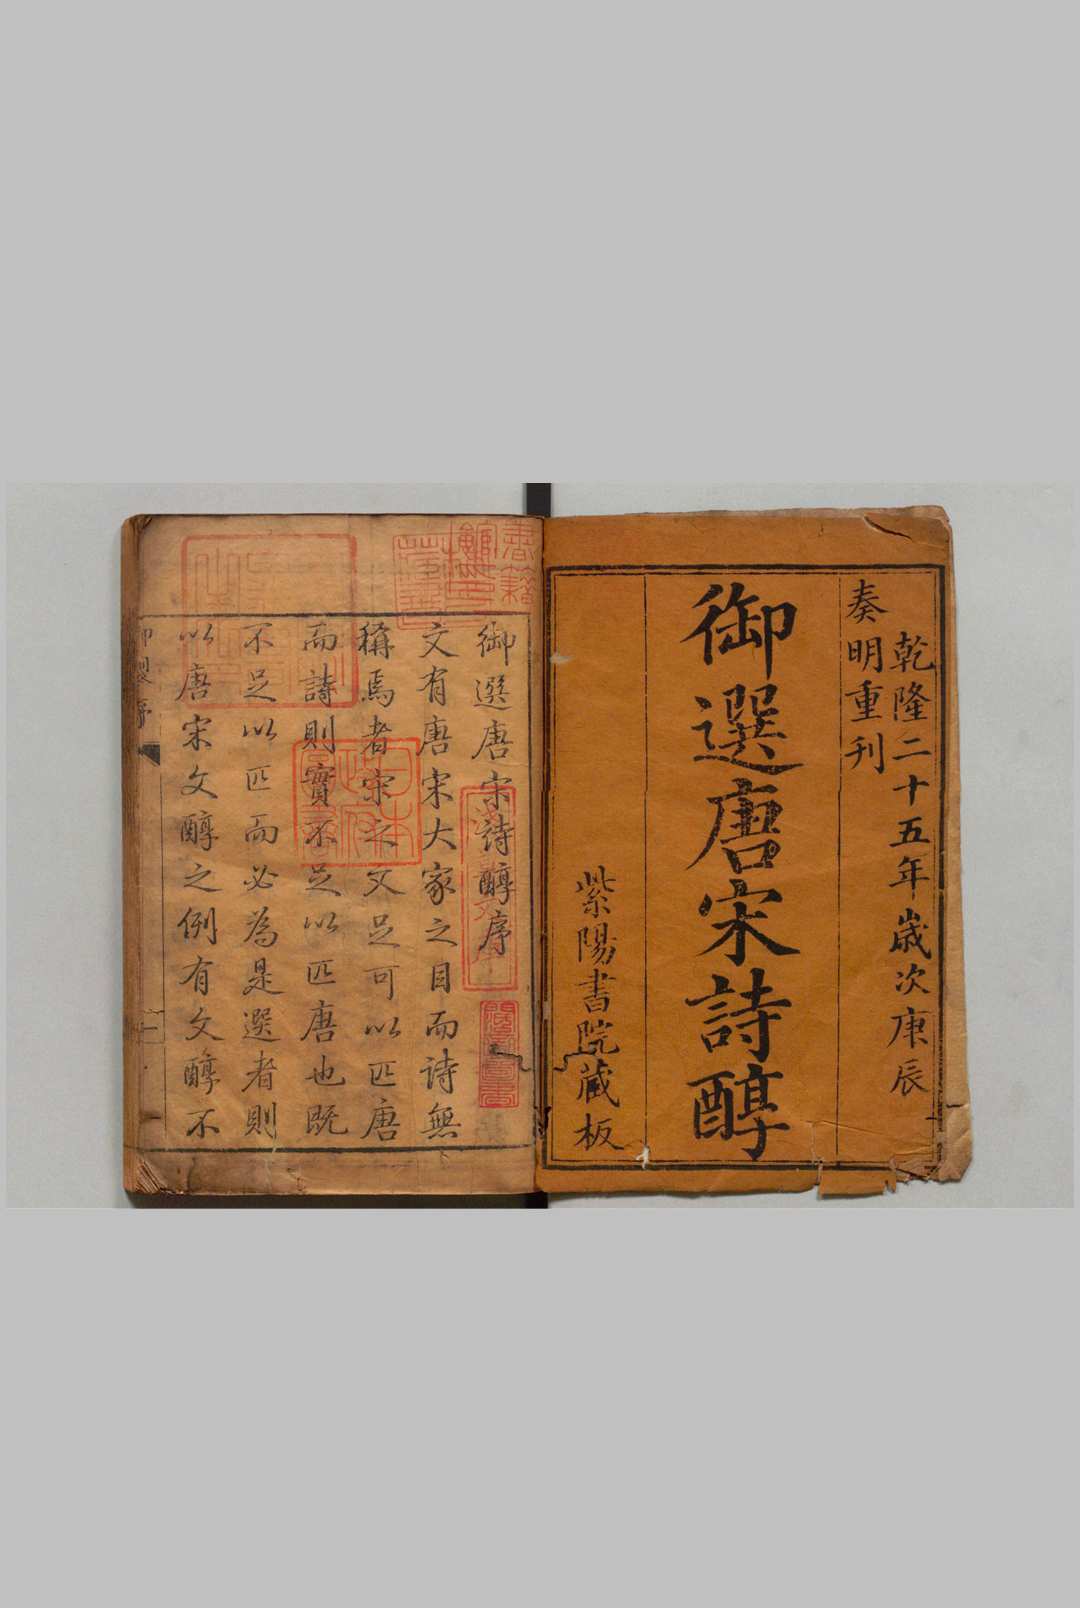 乾隆二十五年歲次庚辰
奏明重刊
御選唐宋詩醇
紫陽書院藏板
御選唐宋詩醇序
文有唐宋大家之目而詩無
稱焉者宋之文足可以匹唐
而詩則實不足以匹唐也既
不足以匹而必為是選者則
以唐宋文醇之例有文醇不
御製序